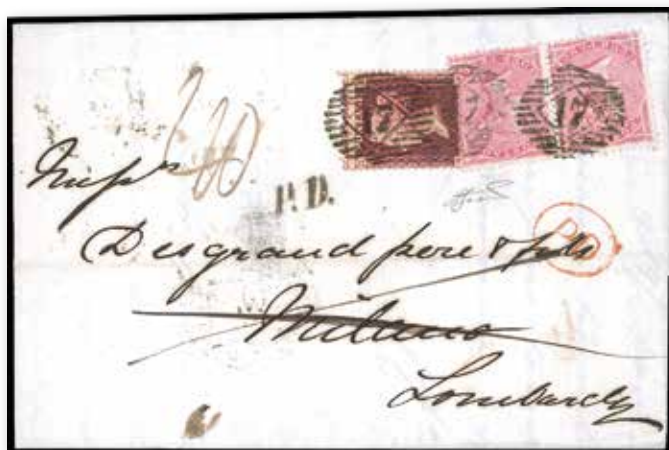 Messrs
P.D.
Desgrand pere & fils
Milano
Lombardy